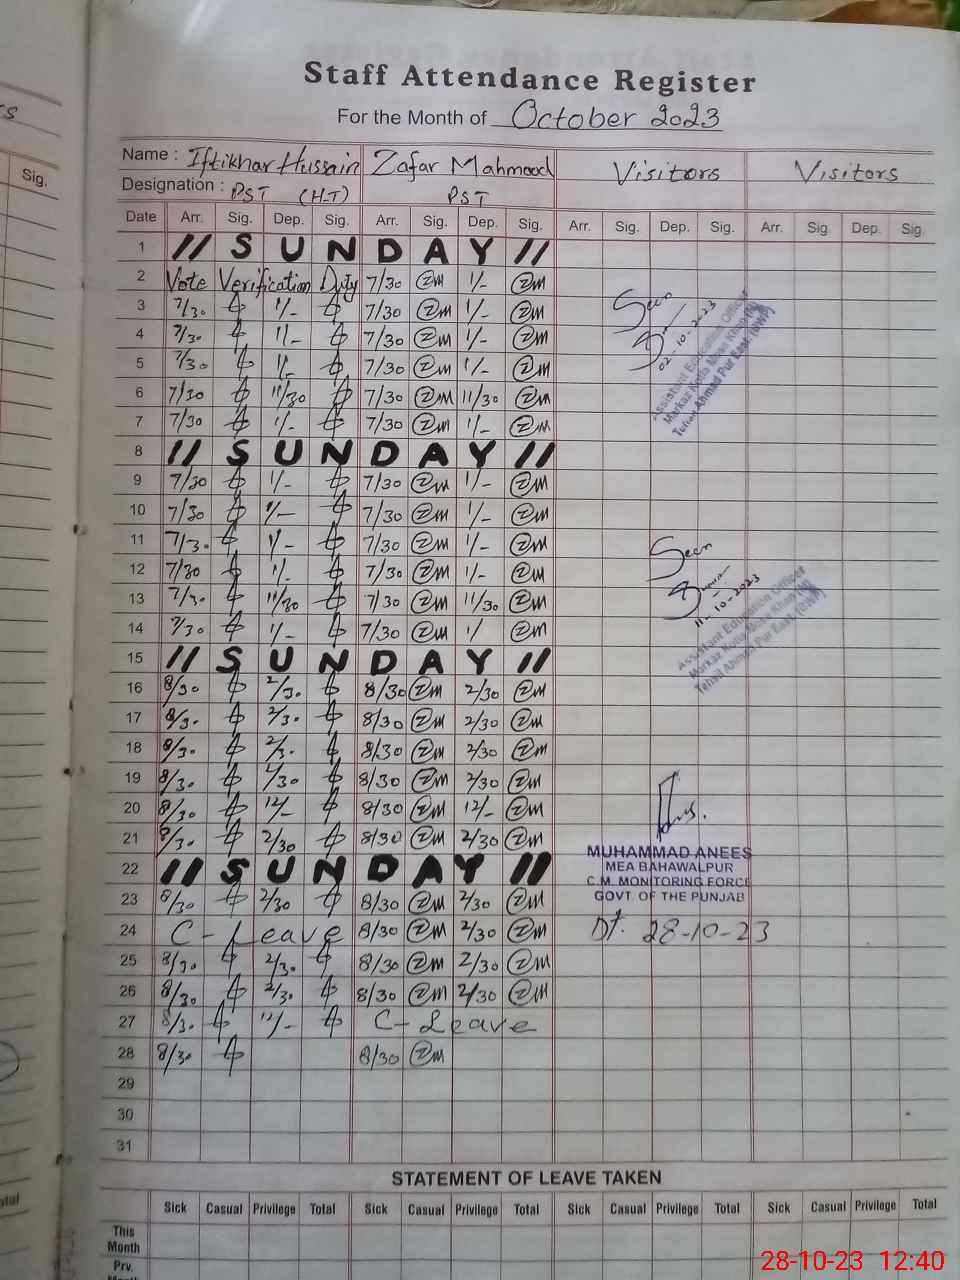 Staff Attendance Register
For the Month of October 2023
Name : Iftikhar Hussain Zafar Mahmood Visitors Visitors
Designation : PST (H-T) PST
Date Arr. Sig. Dep. Sig. Arr. Sig. Dep. Sig. Arr. Sig. Dep. Sig. Arr. Sig. Dep. Sig.
1 // S U N D A Y //
2 Vote Verification Duty 7/30 ZM 1/- ZM
3 7/30 1/- 7/30 ZM 1/- ZM
4 7/30 1/- 7/30 ZM 1/- ZM
5 7/30 1/- 7/30 ZM 1/- ZM
6 7/30 11/30 7/30 ZM 11/30 ZM
7 7/30 1/- 7/30 ZM 1/- ZM
8 // S U N D A Y //
9 7/30 1/- 7/30 ZM 1/- ZM
10 7/30 1/- 7/30 ZM 1/- ZM
11 7/30 1/- 7/30 ZM 1/- ZM
12 7/30 1/- 7/30 ZM 1/- ZM
13 7/30 11/30 7/30 ZM 11/30 ZM
14 7/30 1/- 7/30 ZM 1/ ZM
15 // S U N D A Y //
16 8/30 2/30 8/30 ZM 2/30 ZM
17 8/30 2/30 8/30 ZM 2/30 ZM
18 8/30 2/30 8/30 ZM 2/30 ZM
19 8/30 2/30 8/30 ZM 2/30 ZM
20 8/30 12/- 8/30 ZM 12/- ZM
21 8/30 2/30 8/30 ZM 2/30 ZM
22 // S U N D A Y //
23 8/30 2/30 8/30 ZM 2/30 ZM
24 C - Leave 8/30 ZM 2/30 ZM
25 8/30 2/30 8/30 ZM 2/30 ZM
26 8/30 2/30 8/30 ZM 2/30 ZM
27 8/30 12/- C - Leave
28 8/30 8/30 ZM
29
30
31
Seen
02-10-2023
Assistant Education Officer
Markaz Kotla Mosa Khan (M)
Tehsil Ahmad Pur East. (BWP)
Seen
11-10-2023
Assistant Education Officer
Markaz Kotla Mosa Khan (M)
Tehsil Ahmad Pur East. (BWP)
MUHAMMAD ANEES
MEA BAHAWALPUR
C.M. MONITORING FORCE
GOVT. OF THE PUNJAB
Dt. 28-10-23
STATEMENT OF LEAVE TAKEN
Sick Casual Privilege Total Sick Casual Privilege Total Sick Casual Privilege Total Sick Casual Privilege Total
This
Month
Prv.
Sig.
28-10-23 12:40